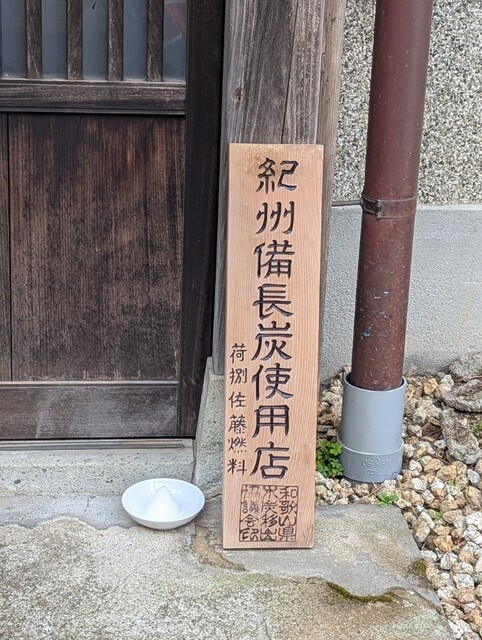 紀州備長炭使用店
荷捌佐藤燃料
和歌山県
木炭移出
協議会印